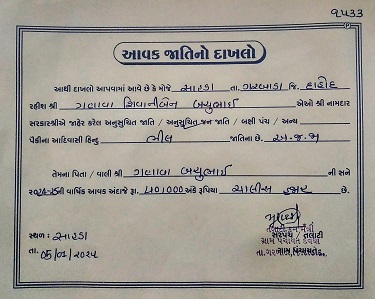 ૧૫૩૩
આવક જાતિનો દાખલો
આથી દાખલો આપવામાં આવે છે કે મોજે સારડા તા. ગરબાડા જિ. દાહોદ
રહીશ શ્રી ગણાવા શિવાનીબેન બચુભાઈ એઓ શ્રી નામદાર
સરકારશ્રીએ જાહેર કરેલ અનુસૂચિત જાતિ / અનુસૂચિત જન જાતિ / બક્ષી પંચ / અન્ય
પૈકીના આદિવાસી હિન્દુ ભીલ જાતિના છે. અ.જ.જા
તેમના પિતા / વાલી શ્રી ગણાવા બચુભાઈ ની સને
૨૦૨૪-૨૫ની વાર્ષિક આવક અંદાજે રૂા. ૪૦,૦૦૦ અંકે રૂપિયા ચાલીસ હજાર છે.
તલાટી કમ મંત્રી
સ્થળ : સારડા સરપંચ / તલાટી
ગ્રામ પંચાયત
તા. ૦૫/૦૧/૨૦૨૫ તા.ગરબાડા